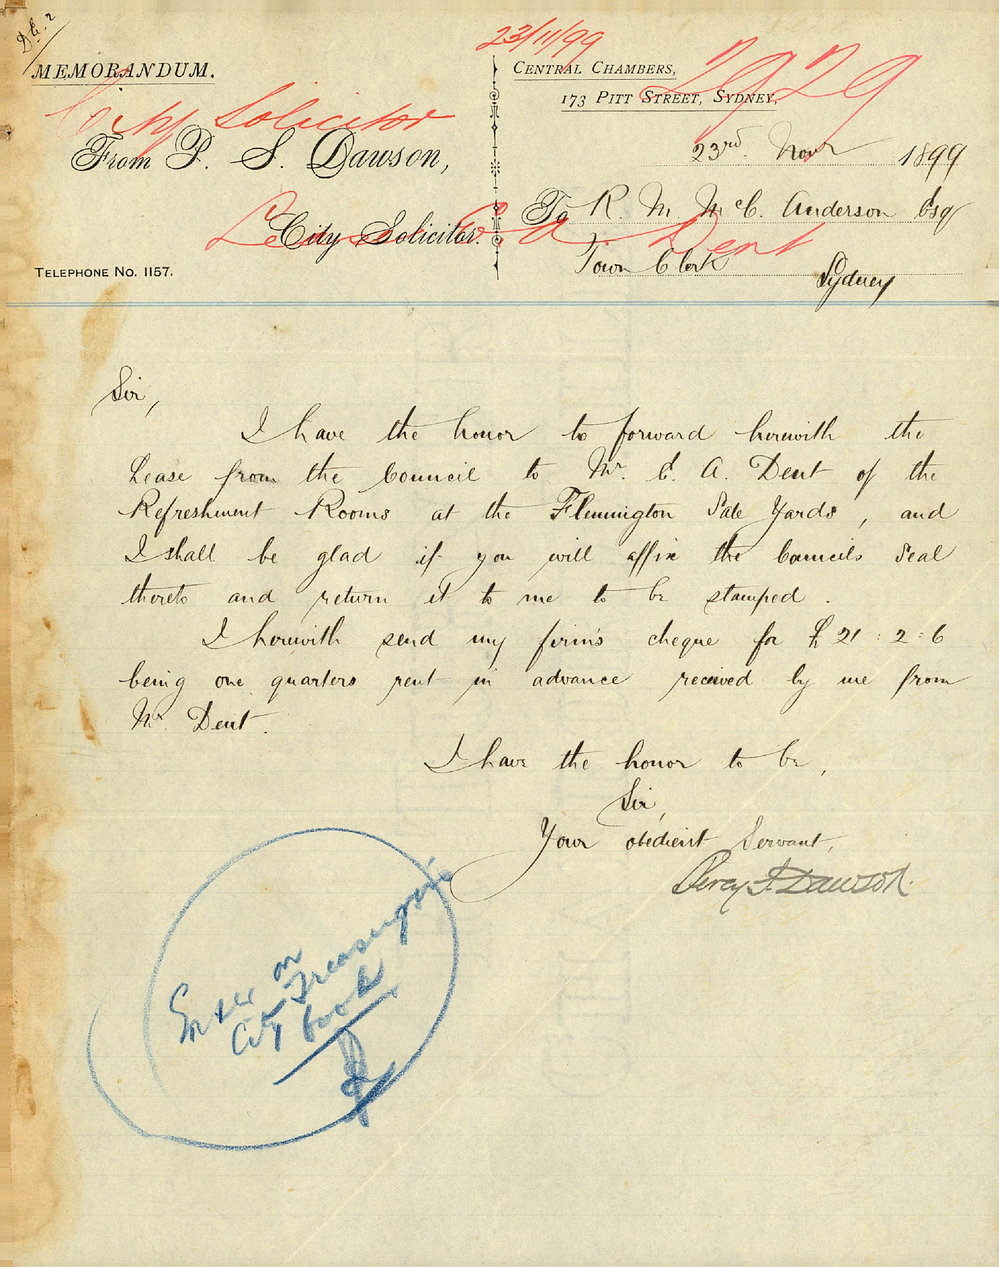 23/11/99
MEMORANDUM.
CENTRAL CHAMBERS,
2929
173 PITT STREET, SYDNEY,
City Solicitor
From P. S. Dawson,
23rd. Novr 1899
City Solicitor.
To R M McC. Anderson Esq
Lease Dent
Town Clerk
Sydney
TELEPHONE NO. 1157.
Sir,
I have the honor to forward herewith the
Lease from the Council to Mr. E. A. Dent of the
Refreshment Rooms at the Flemington Sale Yards, and
I shall be glad if you will affix the Councils Seal
thereto and return it to me to be stamped.
I herewith send my firm's cheque for £21:2:6
being one quarters rent in advance received by me from
Mr. Dent.
I have the honor to be,
Sir,
Your obedient Servant,
Percy S. Dawson.
on
City Treasurer's
book